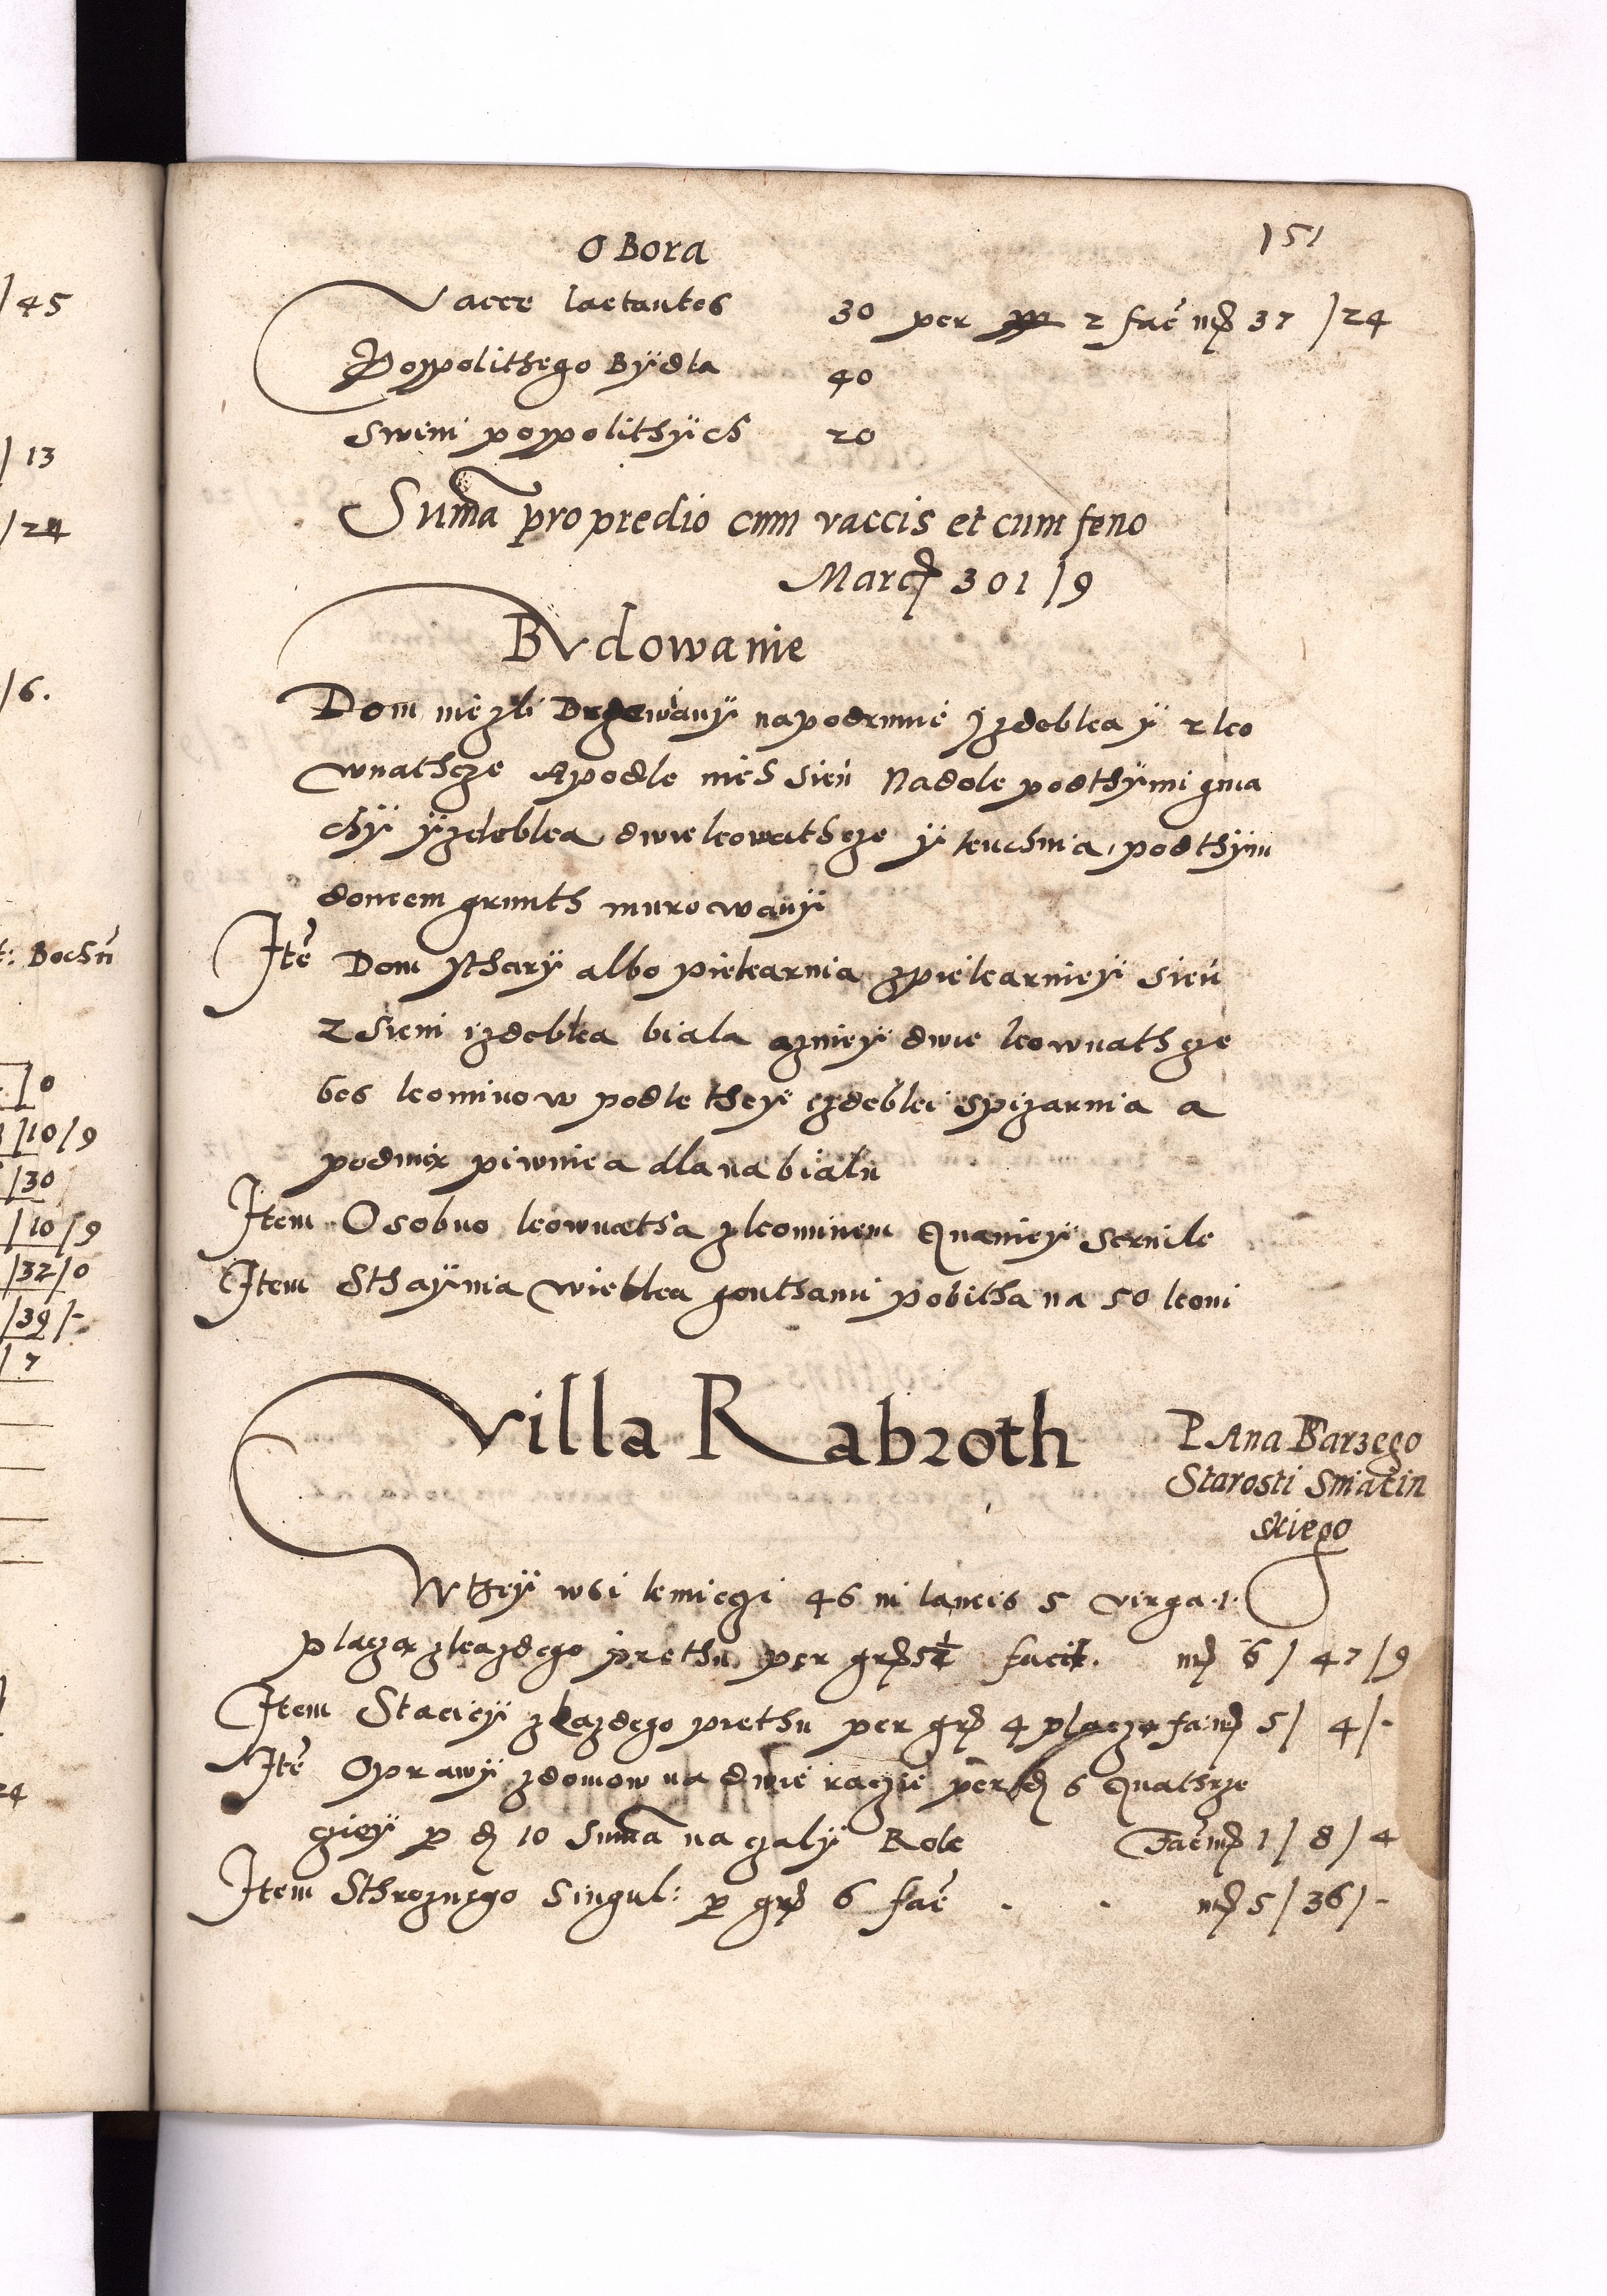 151
OBora
Vacce lactantes 30 per 2 fac̃ mr̃ 37 / 24
Poppolithego Bÿdla 40
Swini poppolithÿch 20
Sum̃a pro predio cum vaccis et cum feno
Marcʒ 301 / 9
Bvdowanie
Dom niezli na podrumie Jzdebka ÿ 2 ko
wnathcze podle nich sień Nadole podthÿmi gma
chÿ ÿzdebka dwie kownathcze ÿ kuchnia, podthÿm
domem grunth murowanÿ
Itẽ Dom stharÿ albo piekarnia zpiekarnieÿ sień
z sieni izdebka biala aznieÿ dwie kownathcze
bes kominow podle theÿ izdebki spizarnia a
podnią piwnica dla nabialu
Item Osobno kownatha zkominem Qnanieÿ
Item Sthaÿnia wielka gonthami pobitha na 50 koni
Villa Rabroth
PAna Barzego
Starosti Sniatin
skiego
W theÿ wsi kmieczi 46 in laneis 5 virga .1.
placza zkazdego prethu per grʒ 5½ facit. mr̃ 6 / 47 / 9
Item Stacieÿ zkazdego prethu per grʒ 4 placza fa: mr̃ 5 / 4 / -
Itẽ Oprawÿ zdomow na dwie raczie per 6 Quathrze
cieÿ p 10 Sum̃a na czalÿ Rok Fac̃ mr̃ 1 / 8 / 4
Item Sthroznego Singul: p grʒ 6 fac̃ . . mr̃ 5 / 36 / -
/ 45
/ 13
/ 24
/ 6.
t: Bochñ
/ 0
/ 10 / 9
/ 30
/ 10 / 9
/ 32 / 0
/ 39 / -
/ 7
24